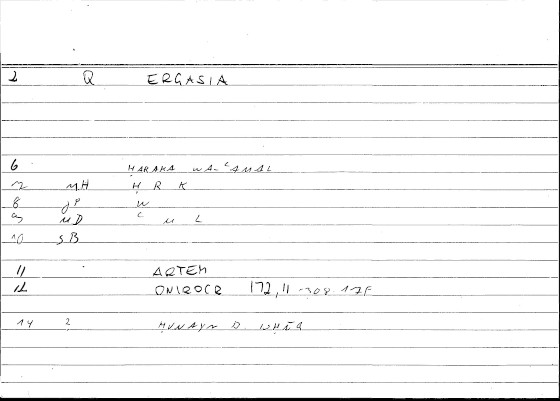 2 Q ERGASIA
6 ḤARAKA WA-ʿAMAL
7 MH Ḥ R K
8 JP W
9 MD ʿ M L
10 SB
11 ARTEM
12 ONIROCR 172,11
14 2 ḤUNAYN B. ISḤĀQ